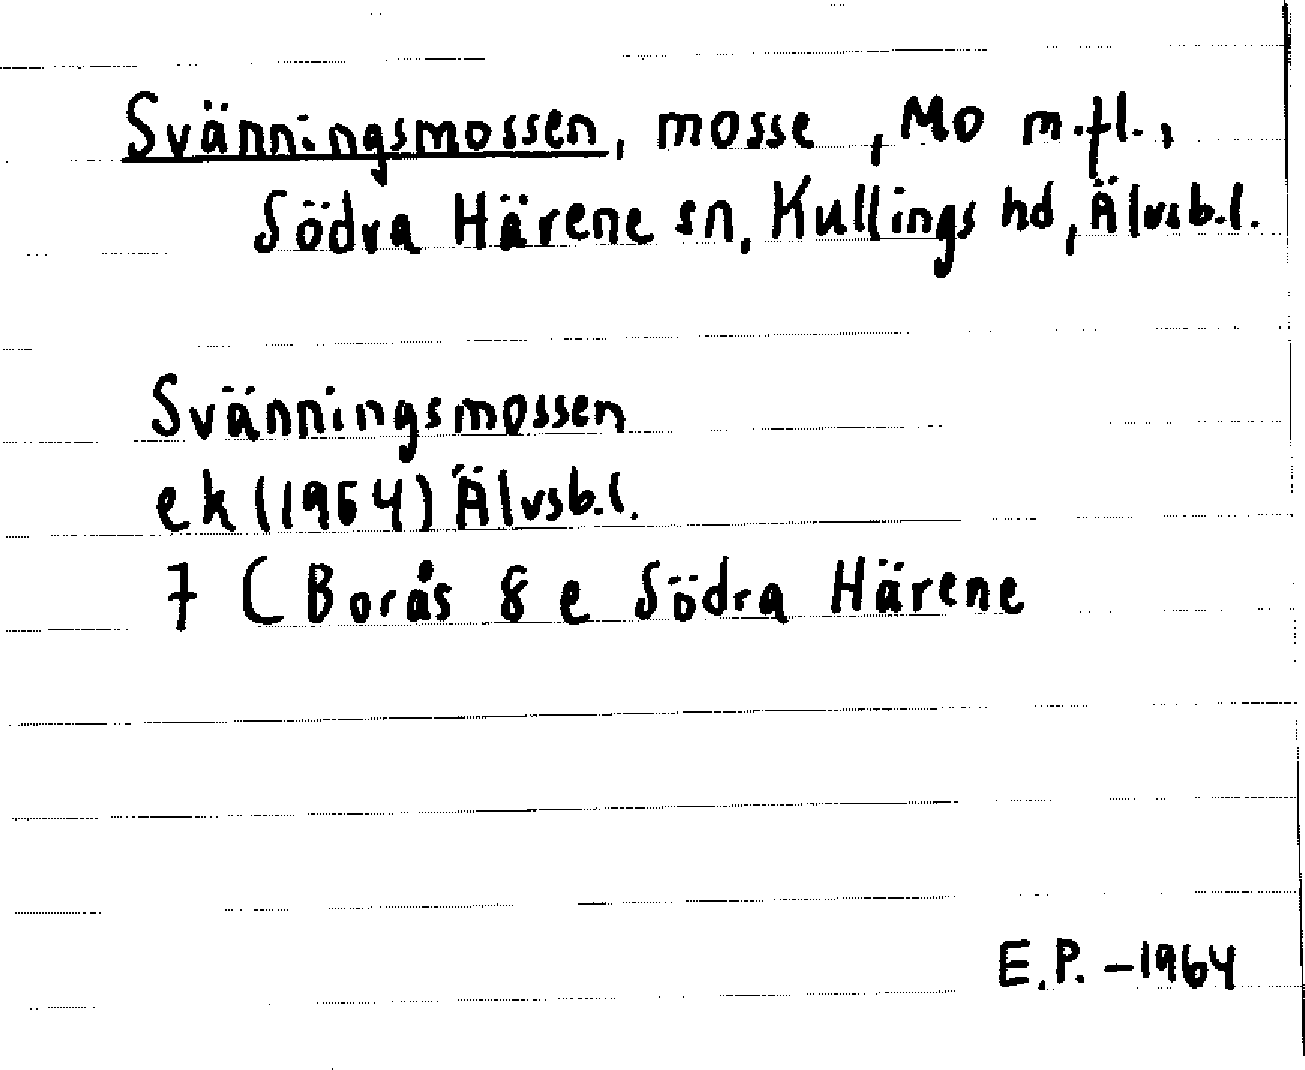 Svänningsmossen, mosse, Mo m.fl.,
Södra Härene sn, Kullings hd, Älvsb.l.
Svänningsmossen
ek (1964) Älvsb.l.
7 C Borås 8 e Södra Härene
E.P. -1964